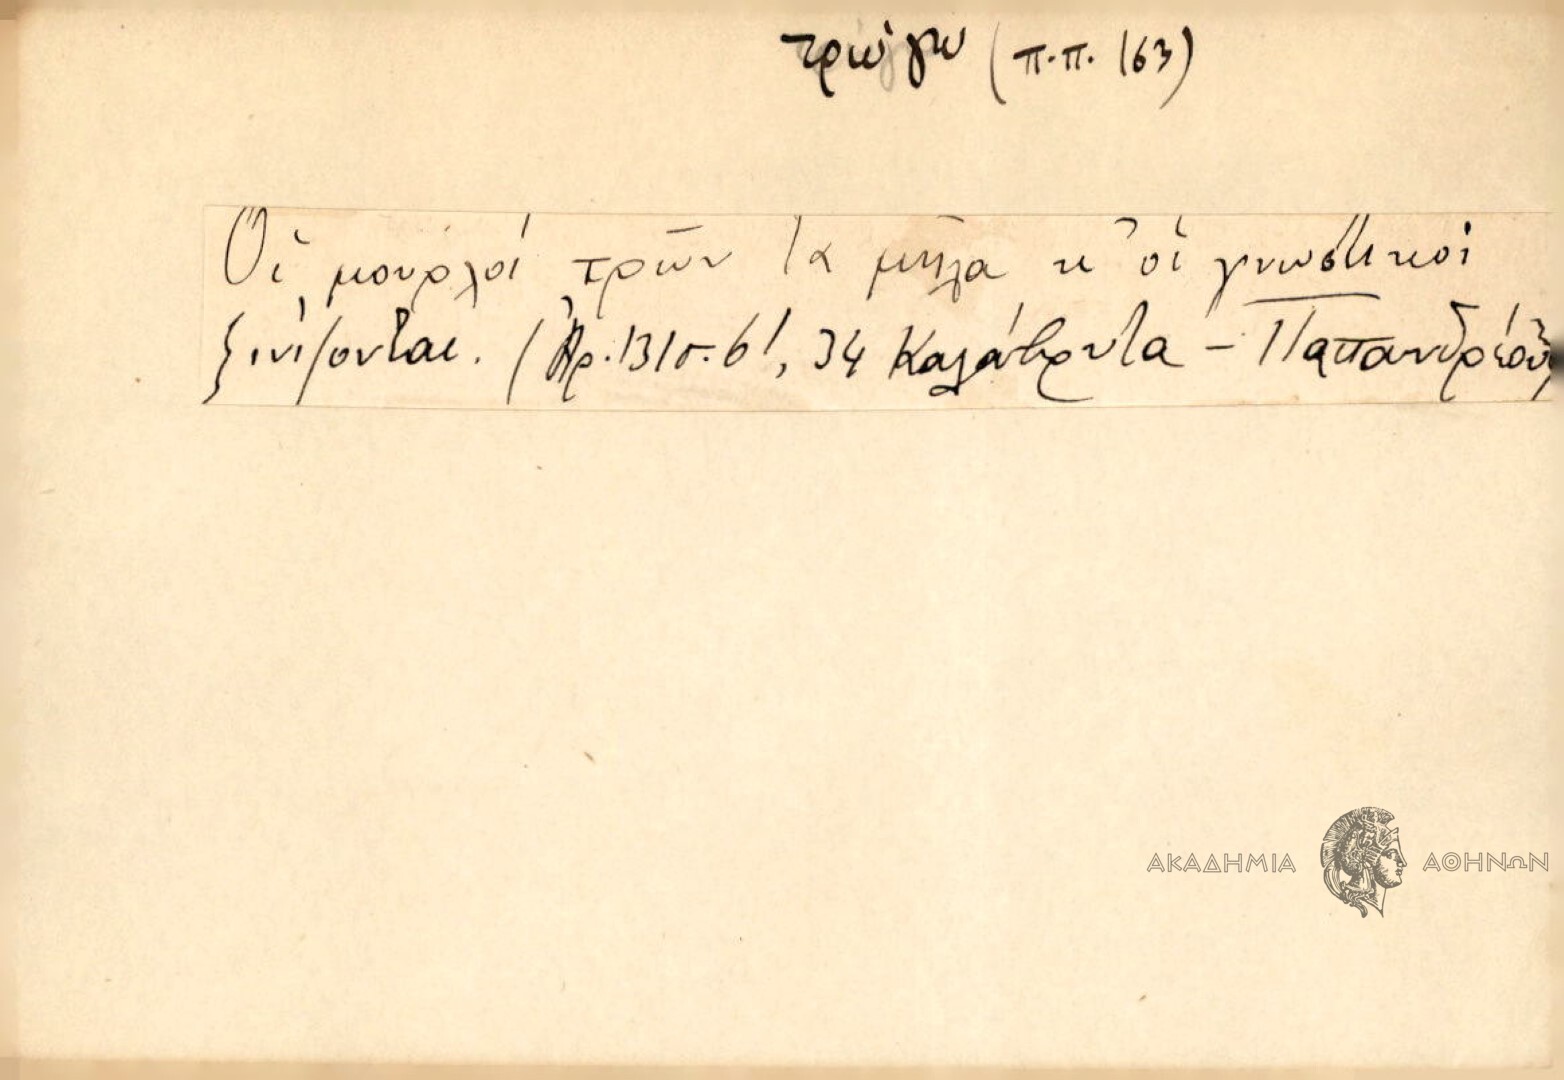 τρώγω (π.π. 163)
Οἱ μουρλοί τρῶν τὰ μῆλα κ̓ οἱ γνωστικοί
ξινίζονται. (Ἀρ. 1310. 6', 34 Καλάβρυτα - Παπανδρέου)
ΑΚΑΔΗΜΙΑ ΑΘΗΝΩΝ